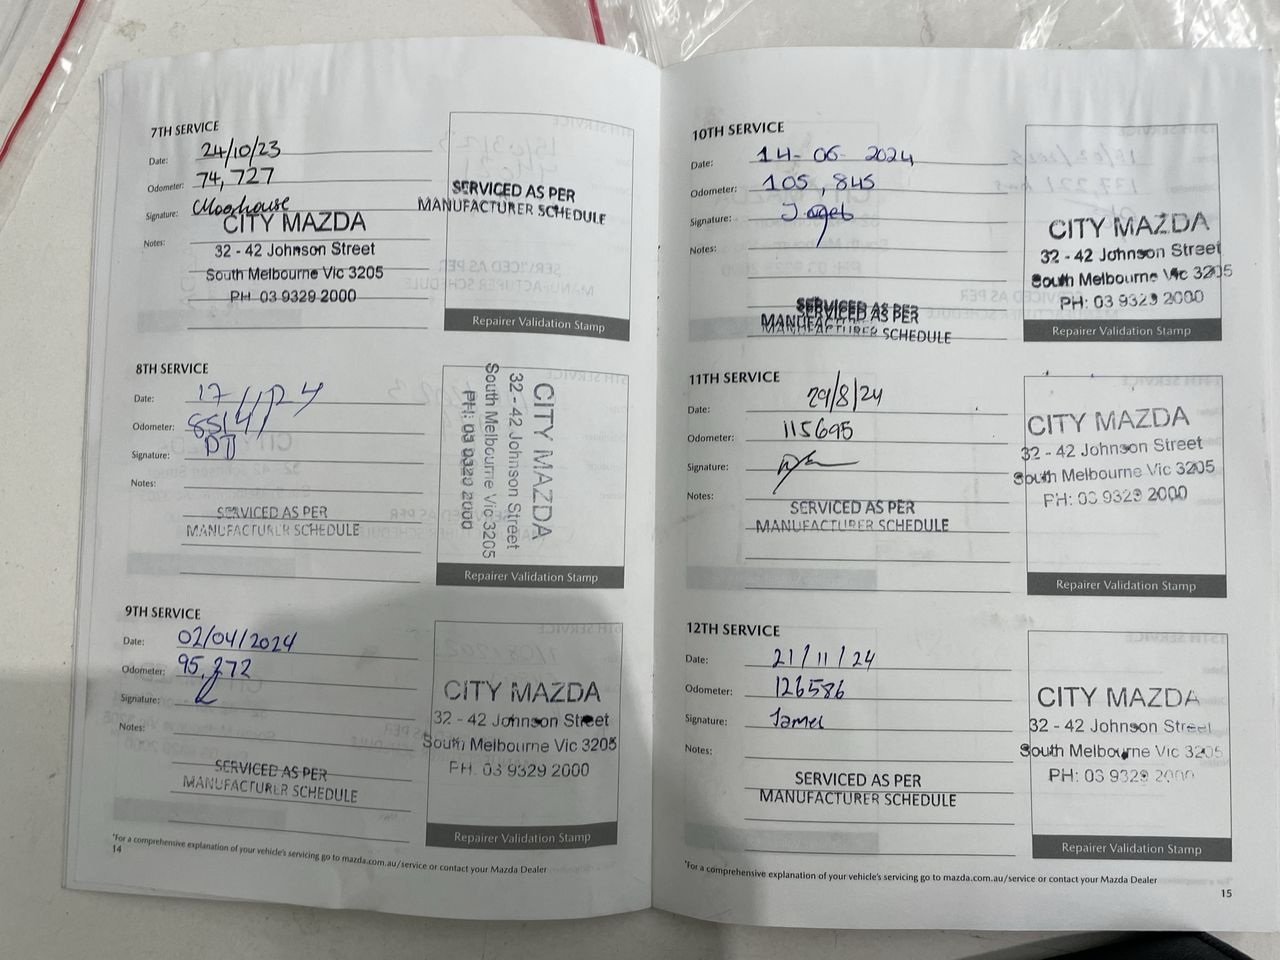 7TH SERVICE
Date: 24/10/23
Odometer: 74,727
Signature: CMoorhouse
Notes:
CITY MAZDA
32 - 42 Johnson Street
South Melbourne Vic 3205
PH 03 9329 2000
SERVICED AS PER
MANUFACTURER SCHEDULE
Repairer Validation Stamp
8TH SERVICE
Date: 17/1/24
Odometer:
Signature:
Notes:
SERVICED AS PER
MANUFACTURER SCHEDULE
CITY MAZDA
32 - 42 Johnson Street
South Melbourne Vic 3205
PH: 03 9329 2000
Repairer Validation Stamp
9TH SERVICE
Date: 02/04/2024
Odometer: 95,272
Signature:
Notes:
SERVICED AS PER
MANUFACTURER SCHEDULE
CITY MAZDA
32 - 42 Johnson Street
South Melbourne Vic 3205
PH. 03 9329 2000
Repairer Validation Stamp
*For a comprehensive explanation of your vehicle's servicing go to mazda.com.au/service or contact your Mazda Dealer
14
10TH SERVICE
Date: 14-06-2024
Odometer: 105,845
Signature:
Notes:
SERVICED AS PER
SERVICED AS PER
MANUFACTURER SCHEDULE
CITY MAZDA
32 - 42 Johnson Street
South Melbourne Vic 3205
PH: 03 9329 2000
Repairer Validation Stamp
11TH SERVICE
Date: 29/8/24
Odometer: 115695
Signature:
Notes:
SERVICED AS PER
MANUFACTURER SCHEDULE
CITY MAZDA
32 - 42 Johnson Street
South Melbourne Vic 3205
PH: 03 9329 2000
Repairer Validation Stamp
12TH SERVICE
Date: 21/11/24
Odometer: 126586
Signature: Jamel
Notes:
SERVICED AS PER
MANUFACTURER SCHEDULE
CITY MAZDA
32 - 42 Johnson Street
South Melbourne Vic 3205
PH: 03 9329 2000
Repairer Validation Stamp
*For a comprehensive explanation of your vehicle's servicing go to mazda.com.au/service or contact your Mazda Dealer
15